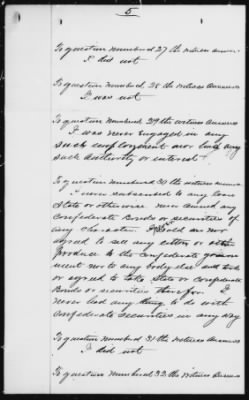 5
To question numbered 27 the witness answers
I did not
To question numbered 28 the witness answers
I was not
To question numbered 29 the witness answers
I was never engaged in any
such employment nor had any
such authority or interest
To question numbered 30 the witness answers
I never subscribed to any loan
State or otherwise never owned any
Confederate Bonds or securities of
any character. I sold nor
agreed to sell any cotton or other
produce to the Confederate govern
ment nor to any body else and
or agreed to take State or Confederate
Bonds or securities therefor. I
never had any thing to do with
Confederate securities in any way
To question numbered 31 the witness answers
I did not
To question numbered 32 the witness answers